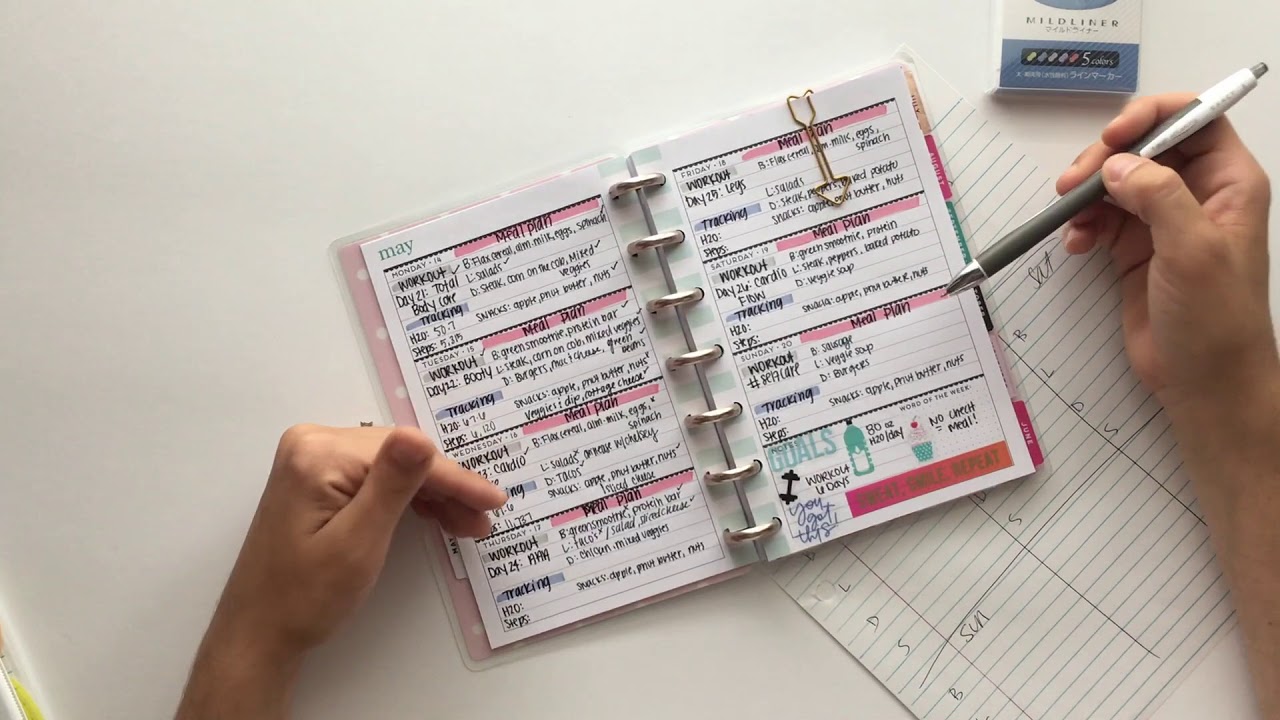 MILDLINER
マイルドライナー
5 colors
ラインマーカー
may
MONDAY • 14
Meal Plan
WORKOUT ✓
B: Flax cereal, alm. milk, eggs, spinach
Day 21: Total
L: salads ✓
Body Core
D: Steak, corn on the cob, Mixed ✓
veggies
Tracking
SNACKS: apple, pnut butter, nuts ✓
H2O: 50.7
Steps: 5,315
TUESDAY • 15
Meal Plan
WORKOUT ✓
B: green smoothie, protein bar ✓
Day 22: Booty
L: steak, corn on cob, mixed veggies ✓
D: Burgers, mac + cheese, green
beans
Tracking
SNACKS: apple, pnut butter, nuts
veggies + dip, cottage cheese ✓
H2O: 67.6
Steps: 6,120
WEDNESDAY • 16
Meal Plan
WORKOUT
B: Flax cereal, alm. milk, eggs,
spinach
Cardio
L: salads
w/ chelsey
D: Tacos
SNACKS: apple, pnut butter, nuts
sliced cheese
11,737
THURSDAY • 17
Meal Plan
WORKOUT
B: green smoothie, protein bar ✓
Day 24:
L: tacos / salad, sliced cheese ✓
D: chicken, mixed veggies
Tracking
SNACKS: apple, pnut butter, nuts
H2O:
Steps:
FRIDAY • 18
Meal Plan
WORKOUT
B: Flax cereal, alm. milk, eggs,
spinach
Day 25: Legs
L: salads
D: Steak, peppers, baked potato
Tracking
SNACKS: apple, pnut butter, nuts
H2O:
Steps:
SATURDAY • 19
Meal Plan
WORKOUT
B: green smoothie, protein
Day 26: Cardio
L: steak, peppers, baked potato
FLOW
D: Veggie soup
Tracking
SNACKS: apple, pnut butter, nuts
H2O:
Steps:
SUNDAY • 20
Meal Plan
WORKOUT
B: Sausage
#selfcare
L: Veggie soup
D: Burgers
Tracking
SNACKS: apple, pnut butter, nuts
H2O:
Steps:
NOTES
GOALS
80 oz
H2O/day
WORD OF THE WEEK:
NO cheat
Meal!
WORKOUT
6 Days
SWEAT, SMILE, REPEAT
you
got
this!
JULY
AUGUST
JUNE
MAY
Sat
B
L
D
S
S
L
D
S
Sun
B